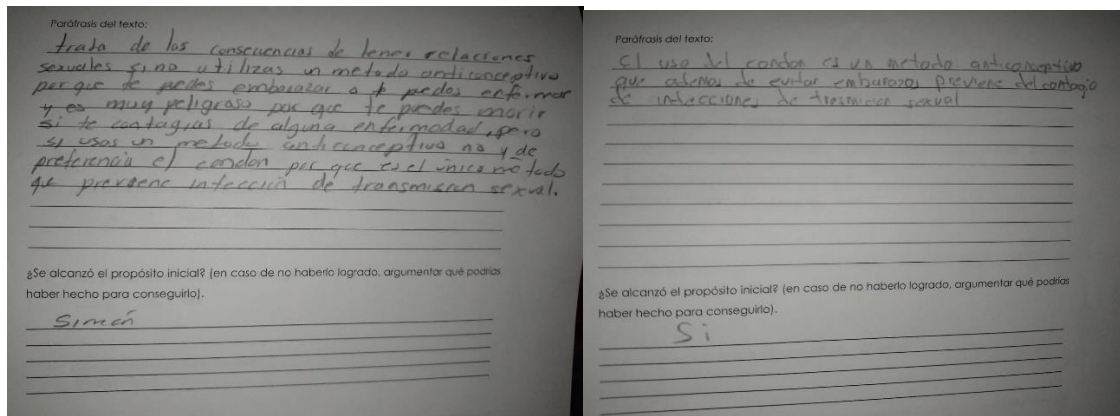 Paráfrasis del texto:
trata de las consecuencias de tener relaciones
sexuales si no utilizas un metodo anticonceptivo
por que te puedes embarazar o t puedes enfermar
y es muy peligroso por que te puedes morir
si te contagias de alguna enfermedad, pero
si usas un metodo anticonceptivo no y de
preferencia el condon por que es el único metodo
que previene infección de transmision sexual.
¿Se alcanzó el propósito inicial? (en caso de no haberlo logrado, argumentar qué podrías
haber hecho para conseguirlo).
Simón
Paráfrasis del texto:
El uso del condon es un metodo anticonceptivo
que ademas de evitar embarazos previene del contagio
de infecciones de trasmicion sexual
¿Se alcanzó el propósito inicial? (en caso de no haberlo logrado, argumentar qué podrías
haber hecho para conseguirlo).
Si